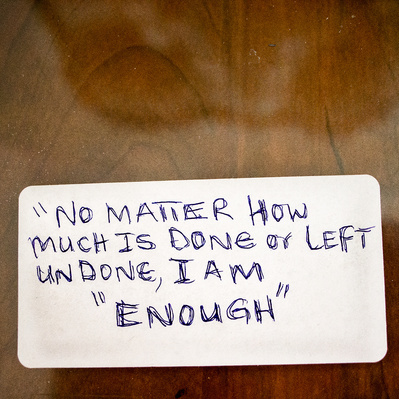 "NO MATTER HOW
MUCH IS DONE or LEFT
UNDONE, I AM
"ENOUGH"